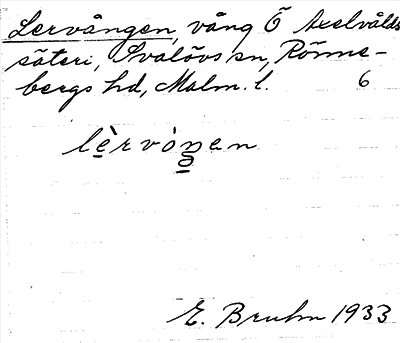 Lervången, vång Ö Axelvålds
säteri, Svalövs sn, Rönne-
bergs hd, Malm. l. 6
lèrvòŋen
E. Bruhn 1933